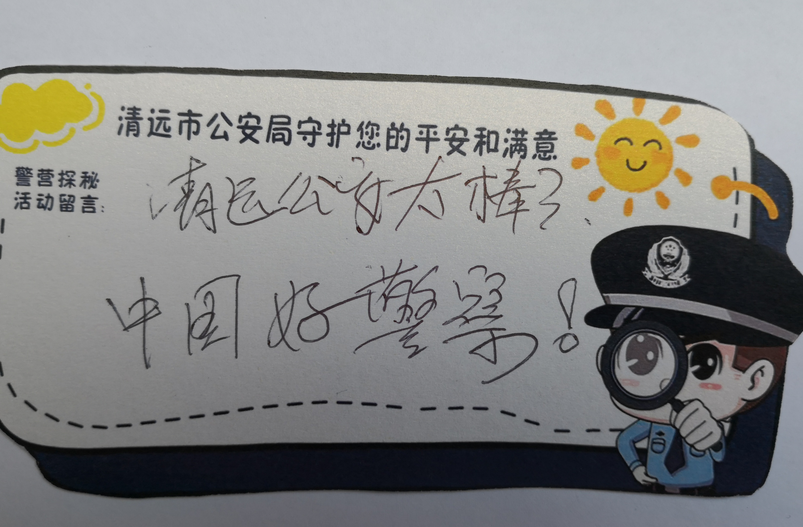 清远市公安局守护您的平安和满意
警营探秘
活动留言:
清远公安太棒了.
中国好警察!